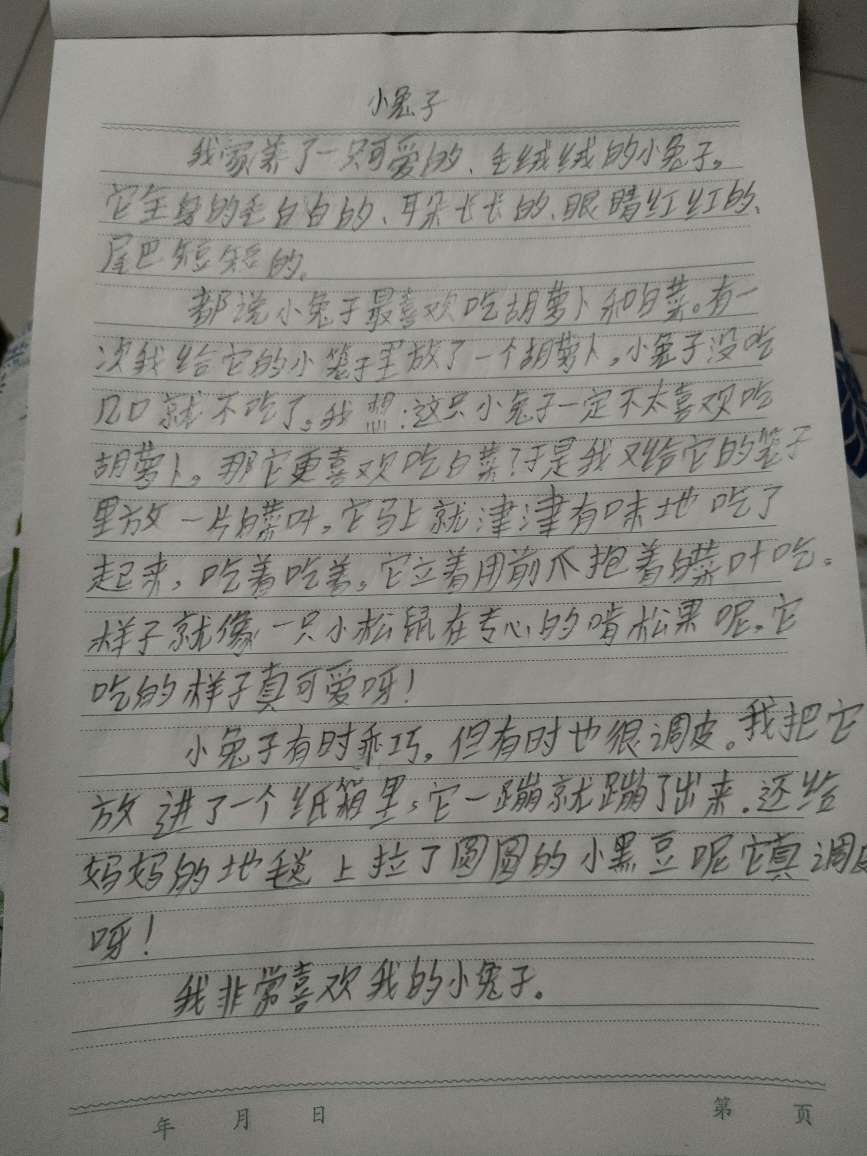 小兔子
我家养了一只可爱的、毛绒绒的小兔子。
它全身的毛白白的、耳朵长长的、眼睛红红的、
尾巴短短的。
都说小兔子最喜欢吃胡萝卜和白菜。有一
次我给它的小笼子里放了一个胡萝卜,小兔子没吃
几口就不吃了。我想:这只小兔子一定不太喜欢吃
胡萝卜。那它更喜欢吃白菜?于是我又给它的笼子
里放一片白菜叶,它马上就津津有味地吃了
起来,吃着吃着,它立着用前爪抱着白菜叶吃。
样子就像一只小松鼠在专心的啃松果呢。它
吃的样子真可爱呀!
小兔子有时乖巧,但有时也很调皮。我把它
放进了一个纸箱里,它一蹦就蹦了出来.还给
妈妈的地毯上拉了圆圆的小黑豆呢它真调皮
呀!
我非常喜欢我的小兔子。
年 月 日 第 页